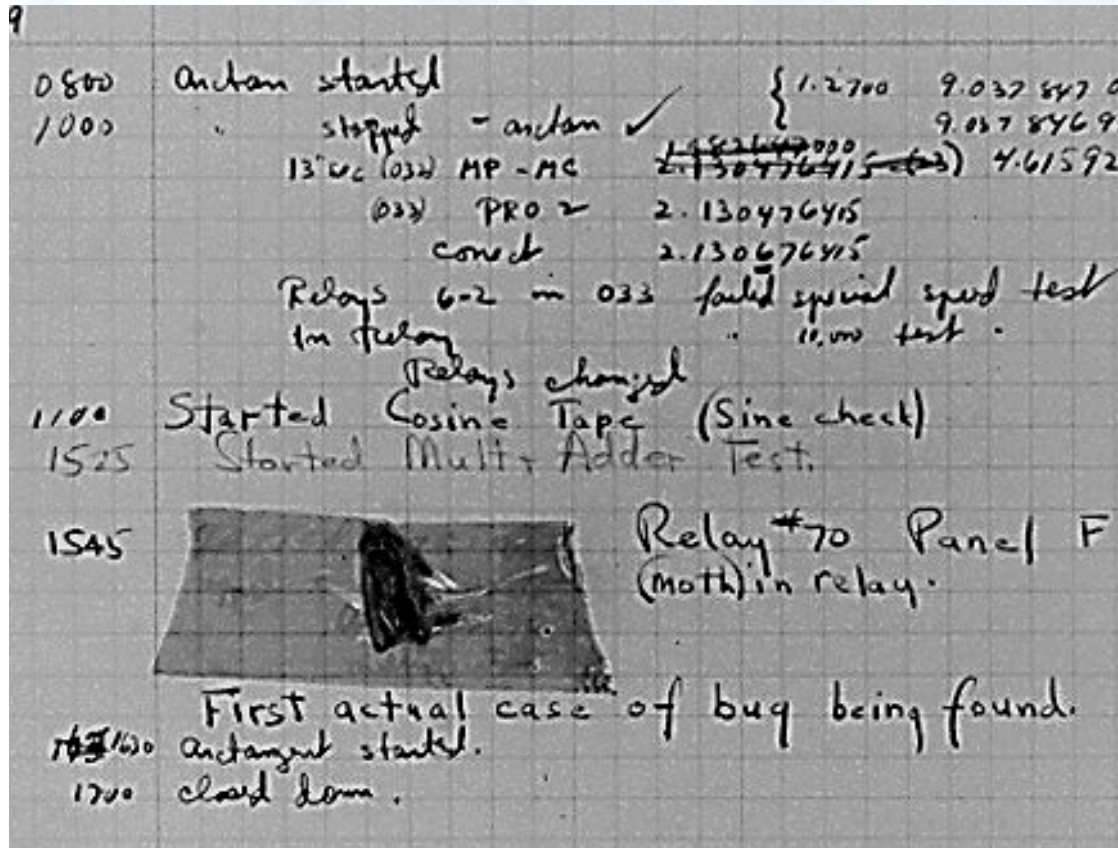 9
0800 arctan started { 1.2700 9.037 847 0
1000 " stopped - arctan ✓ 9.037 846 9
13" uc (032) MP - MC 2.130476415 4.61592
(033) PRO 2 2.130476415
correct 2.130676415
Relays 6-2 in 033 failed special speed test
In relay " 10,000 test .
Relays changed
1100 Started Cosine Tape (Sine check)
1525 Started Mult+ Adder Test.
1545 Relay #70 Panel F
(moth) in relay.
First actual case of bug being found.
1630 arctangent started.
1700 closed down.